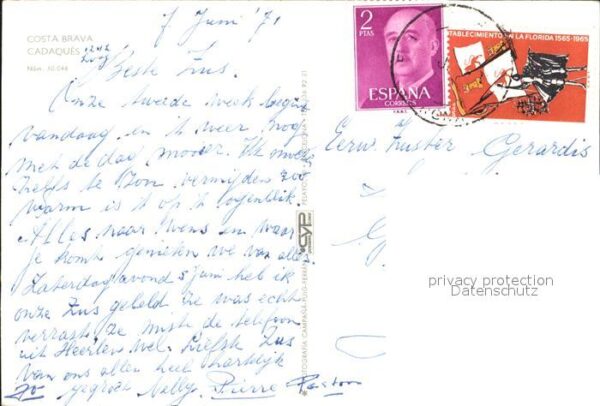 7 Juni '71
COSTA BRAVA
CADAQUÉS
Núm. 10.046
Beste Zus.
Onze tweede week begin
vandaag en 't weer nog
met de dag mooier. Ik moet
zelfs te Zon vermijden zoo
warm is 't op 't ogenblik.
Alles naar wens en waar
je komt genieten we van alles.
Zaterdagavond 5 Juni heb ik
onze Zus gebeld ze was echt
verrast. Ze miste de telefoon
uit Heerlen wel. Liefste Zus
van ons allen heel hartelijk
gegroet Nelly. Pierre Pastoor
2 PTAS
ESPAÑA
CORREOS
ESTABLECIMIENTO EN LA FLORIDA 1565-1965
Eerw. Zuster Gerardis
CYP
FOTOGRAFIA CAMPAÑÁ-PUIG-FERRAN
privacy protection
Datenschutz